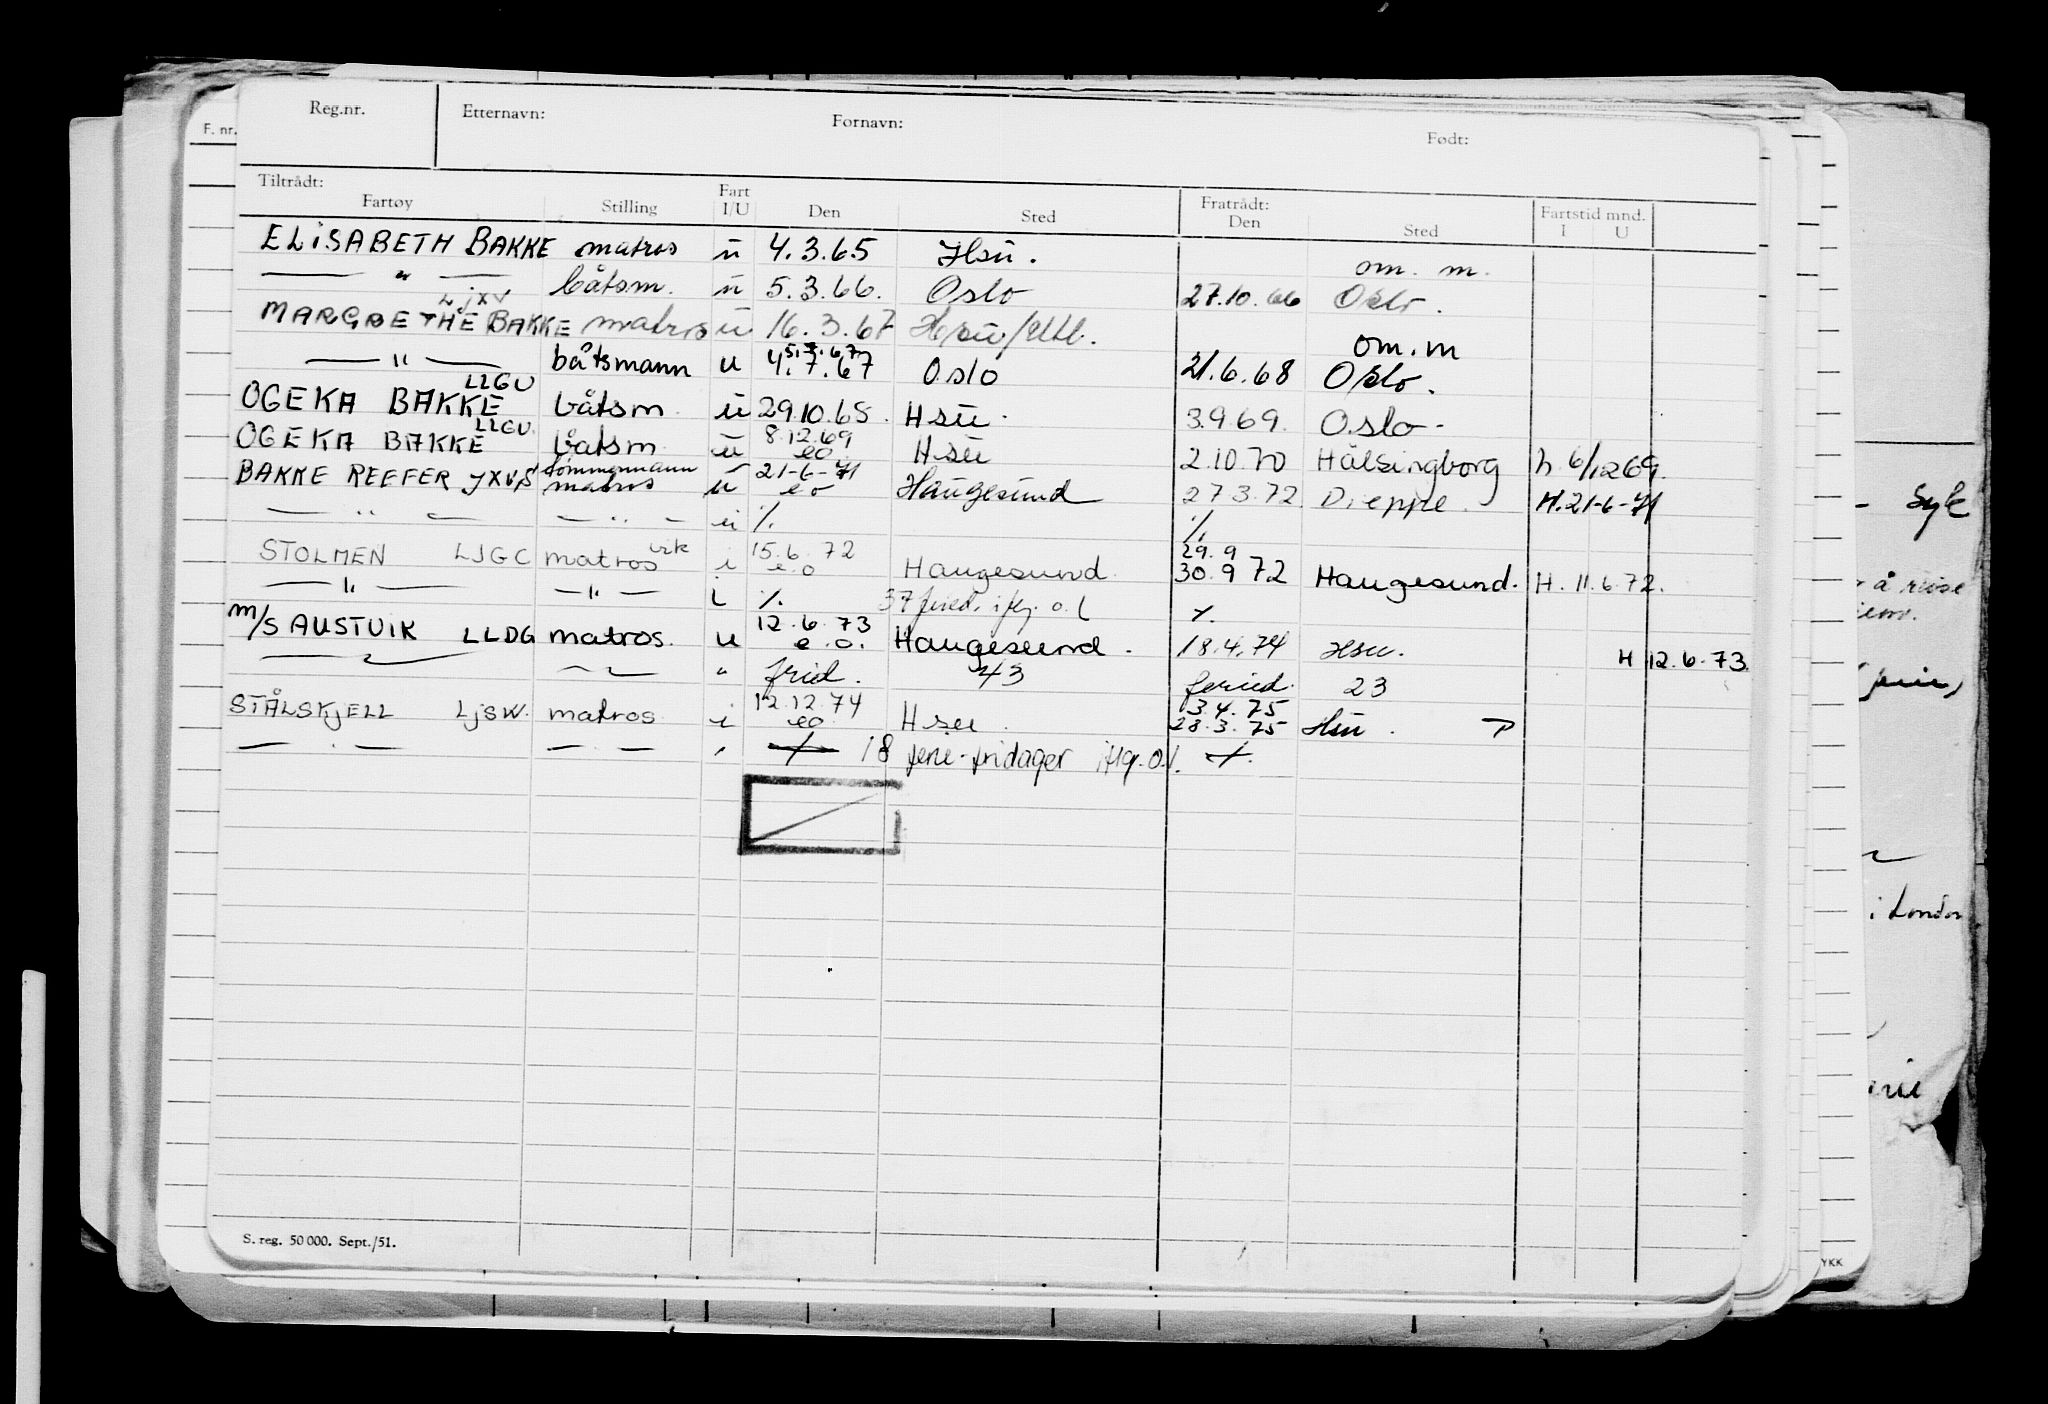 F. nr. Reg.nr. Etternavn: Fornavn: Født:
Tiltrådt: Fartøy Stilling Fart I/U Den Sted Fratrådt: Den Sted Fartstid mnd. I U
ELISABETH BAKKE matros u 4.3.65 Hsu. om. m.
— " — båtsm. u 5.3.66. Oslo 27.10.66 Oslo.
LJXV
MARGRETHE BAKKE matros u 16.3.67 Hsu/Utl. om. m
— " — båtsmann u 4.7.67 5.7.67 Oslo 21.6.68 Oslo.
LLGU
OGEKA BAKKE båtsm. u 29.10.68. Hsu. 3.9.69. Oslo-
LLGU 8.12.69
OGEKA BAKKE båtsm. u eo Hsu 2.10.70 Hälsingborg h. 6/12 69.
tømmermann 21-6-71
BAKKE REEFER JXVS matros u eo Haugesund 27.3.72. Dieppe. H.21-6-71
— " — — " — u ٪ ٪
vik 15.6.72 29.9
STOLMEN LJGC matros i e.o Haugesund. 30.9 72 Haugesund. H. 11.6.72.
— " — — " — i ٪ 37 fried. iflg. o.l ٪
12.6.73
m/S AUSTVIK LLDG matros. u e.o. Haugesund. 18.4.74 Hsu. H 12.6.73
" fried. 43 feried. 23
12.12.74 13.4.75
STÅLSKJELL LJSW. matros i eo Hsu. 28.3.75 Hsu.
— " — — " — 18 ferie-fridager iflg. o.l.
S. reg. 50 000. Sept./51.
Syk
å reise
hjem.
i London
YKK